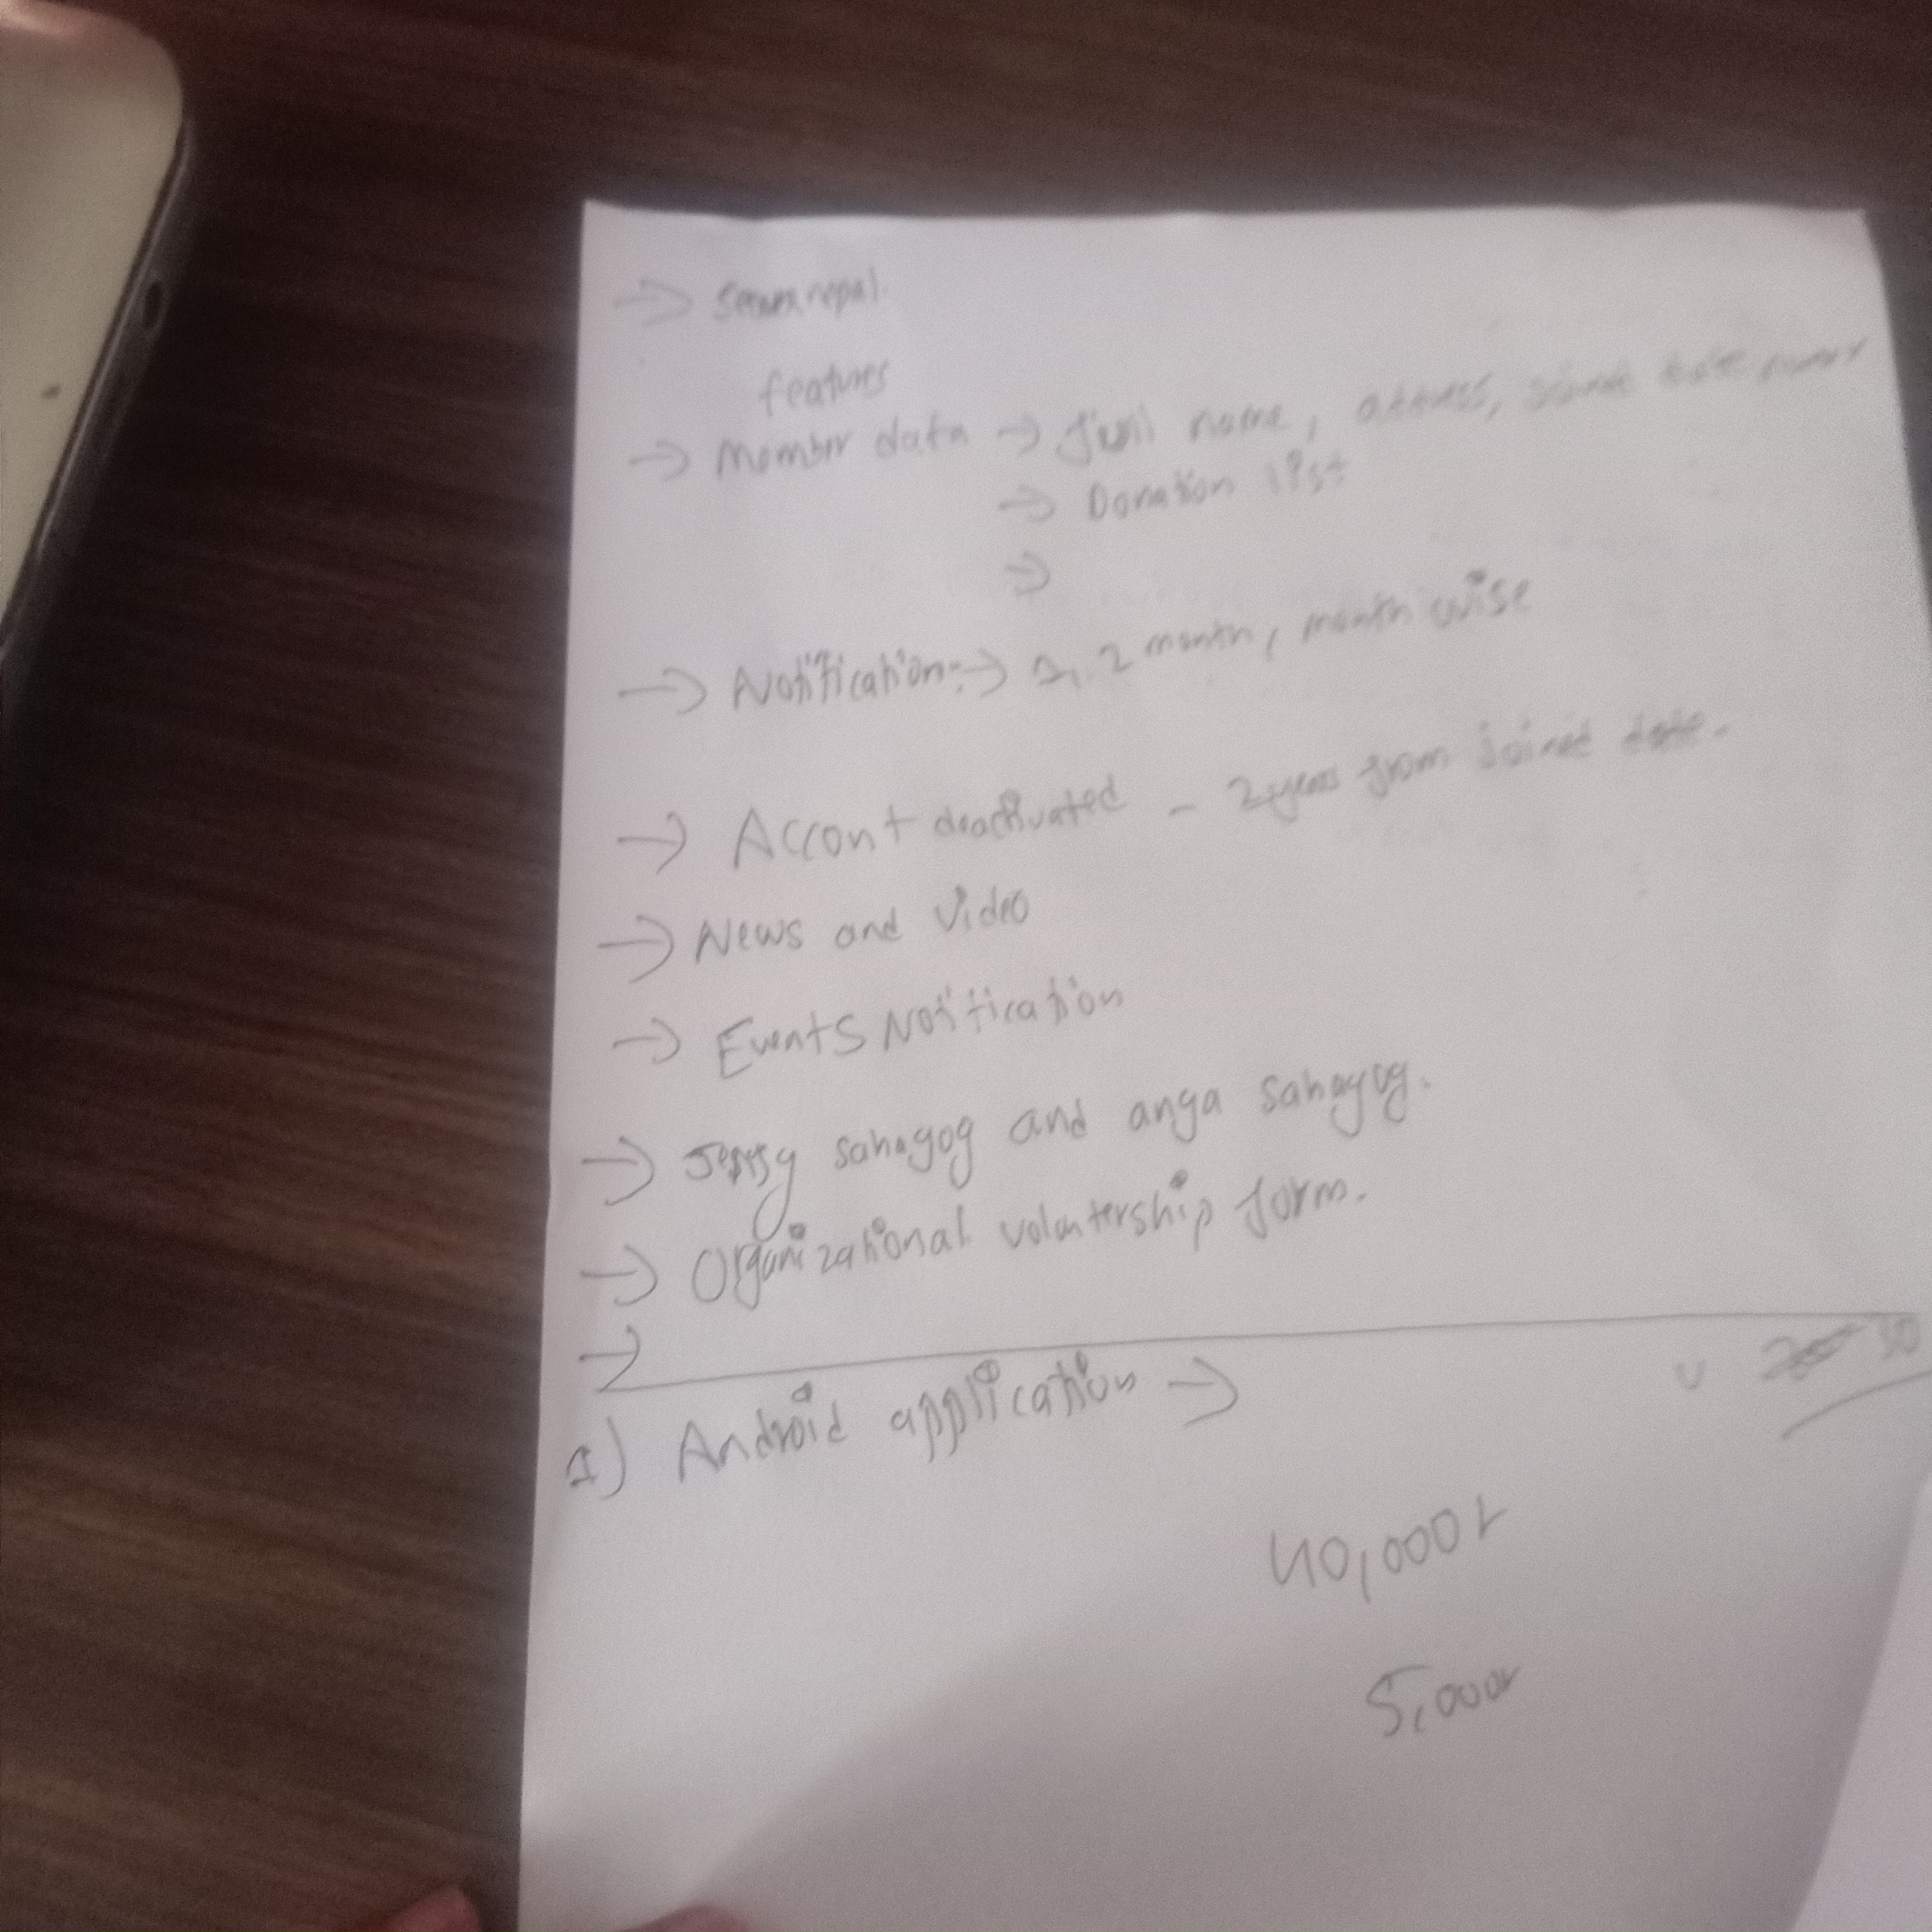 →
features
→ Member data → full name, address,
→ Donation list
→
→ Notification:→ 1, 2 month, month wise
→ Accont deactivated - 2years from joined date.
→ News and Video
→ Events Notification
→ sahayog and anga sahayog.
→ Organizational voluntership form.
→
1) Android application →
40,000
5,000